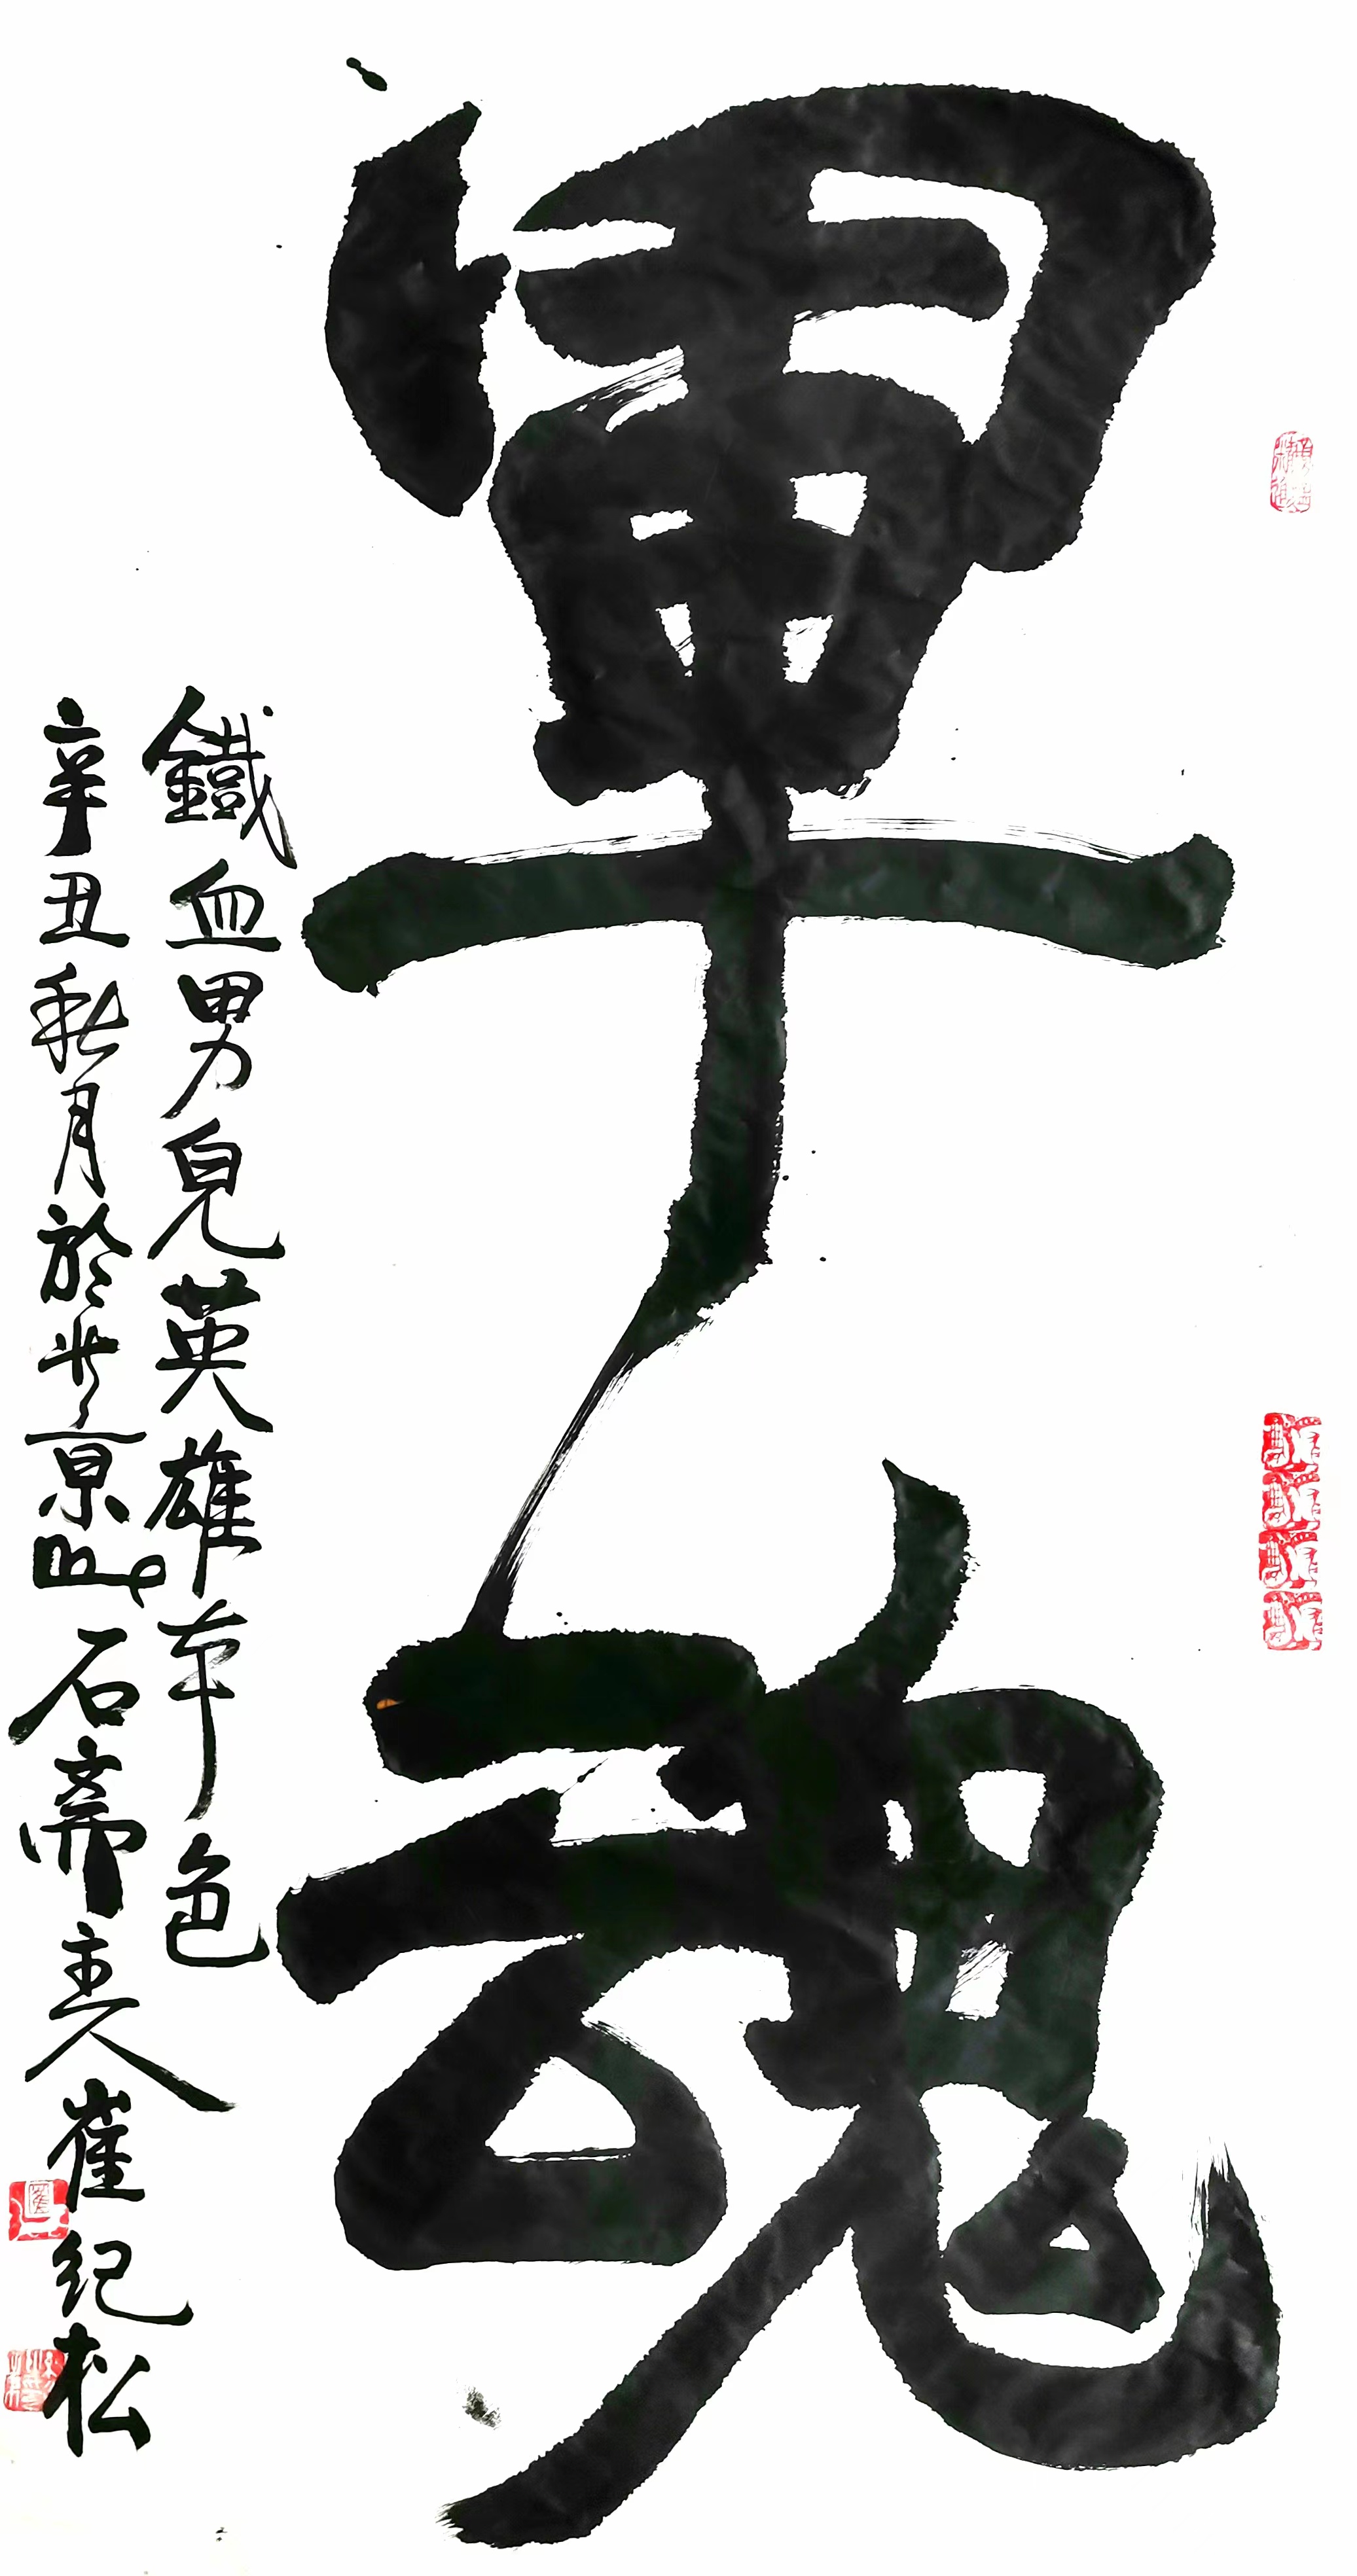 軍魂
鐵血男兒英雄本色
辛丑秋月於北京石齋主人崔纪松